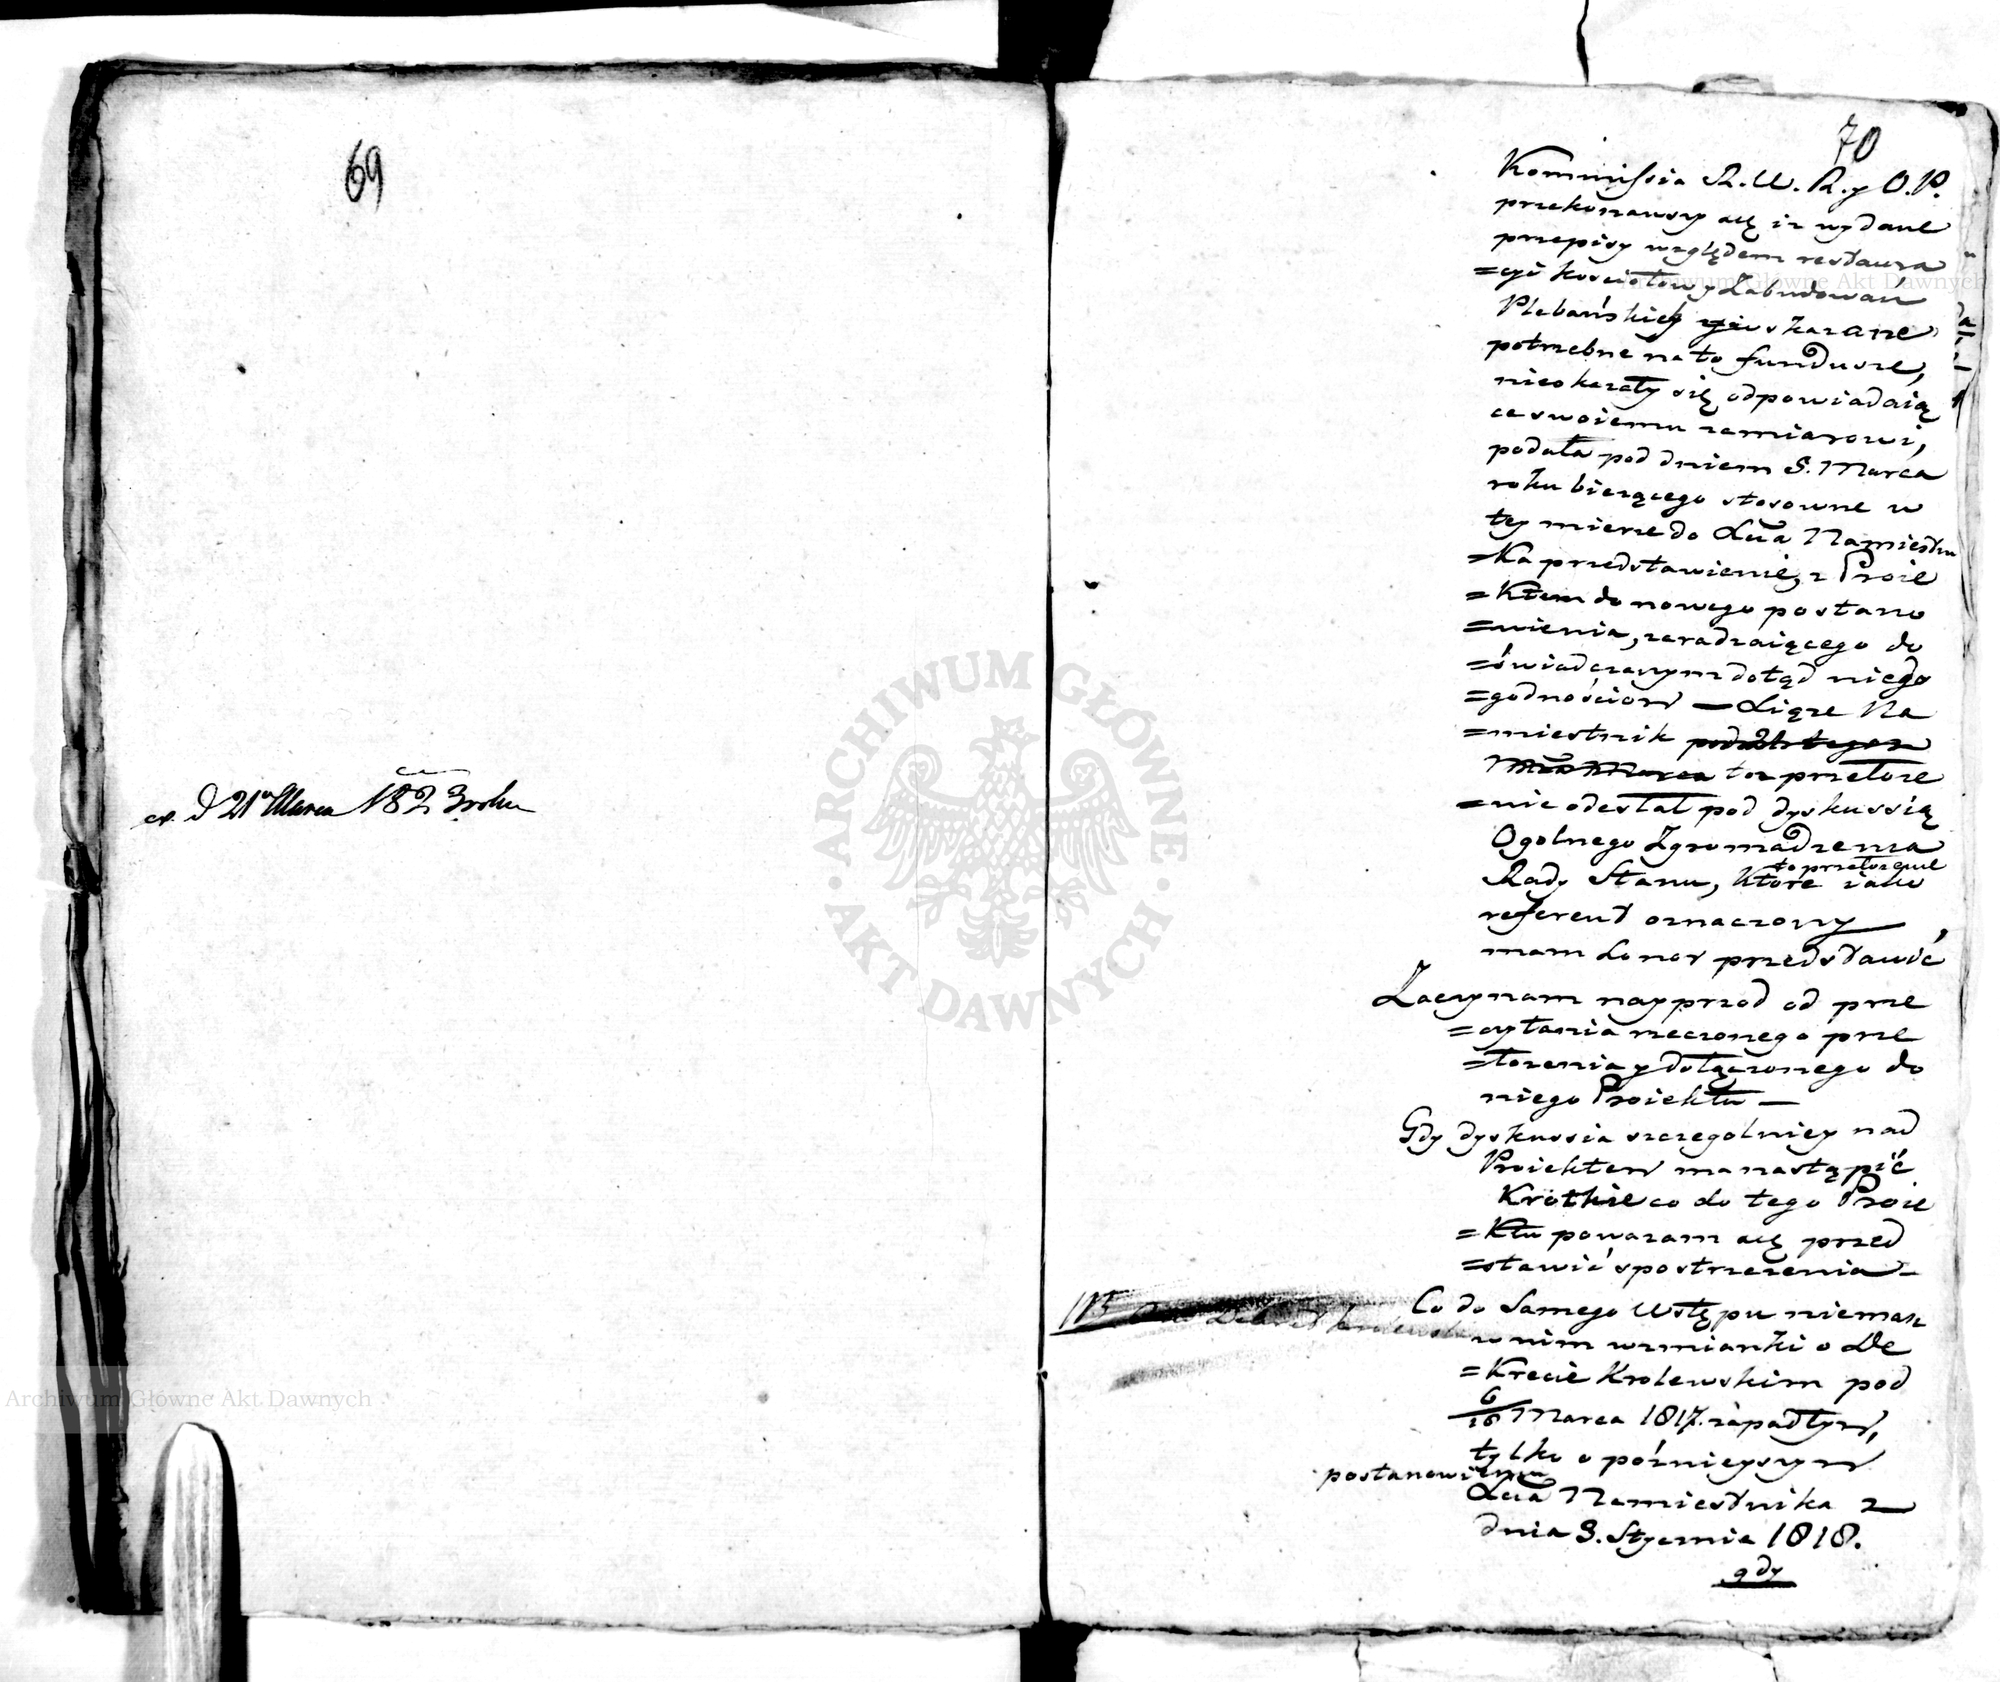 69
d 21 Marca 1823 roku
70
Kommissia R. W. R. y O. P.
przekonawszy się iż wydane
przepisy względem restaura
=cyi kościołow y Zabudowań
Plebańskich y wskazane
potrzebne na to fundusze,
nieokazały się odpowiadaią
ce swoiemu zamiarowi,
podała pod dniem 8. Marca
roku bieżącego stosowne w
tey mierze do Xcia Namiestni
=ka przedstawienie, z Proie
=ktem do nowego postano
=wienia, zaradzaiącego do
=świadczanym dotąd niedo
=godnościom — Xiąże Na
=miestnik
toż przełoże
=nie odesłał pod dyskussią
Ogolnego Zgromadzenia
to przełożenie
Rady Stanu, Które iako
referent oznaczony
mam honor przedstawić
Zaczynam nayprzod od prze
=czytania rzeczonego prze
=łożenia y dołączonego do
niego Proiektu —
Gdy dyskussia szczegolniey nad
Proiektem ma nastąpić
Krótkie co do tego Proie
=ktu poważam się przed
=stawić spostrzeżenia —
Co do Samego Wstępu niemasz
w nim wzmianki o De
=krecie Krolewskim pod
6/18 Marca 1817. zapadłym,
tylko o póżnieyszym
postanowieniu
Xcia Namiestnika z
dnia 3. Stycznia 1818.
gdy
ARCHIWUM GŁÓWNE
AKT DAWNYCH
Archiwum Główne Akt Dawnych
Archiwum Główne Akt Dawnych